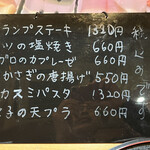 ランプステーキ 1320円
ツの塩焼き 660円
グロのカプレーゼ 660円
かさぎの唐揚げ 550円
カスミパスタ 1320円
子の天プラ 660円